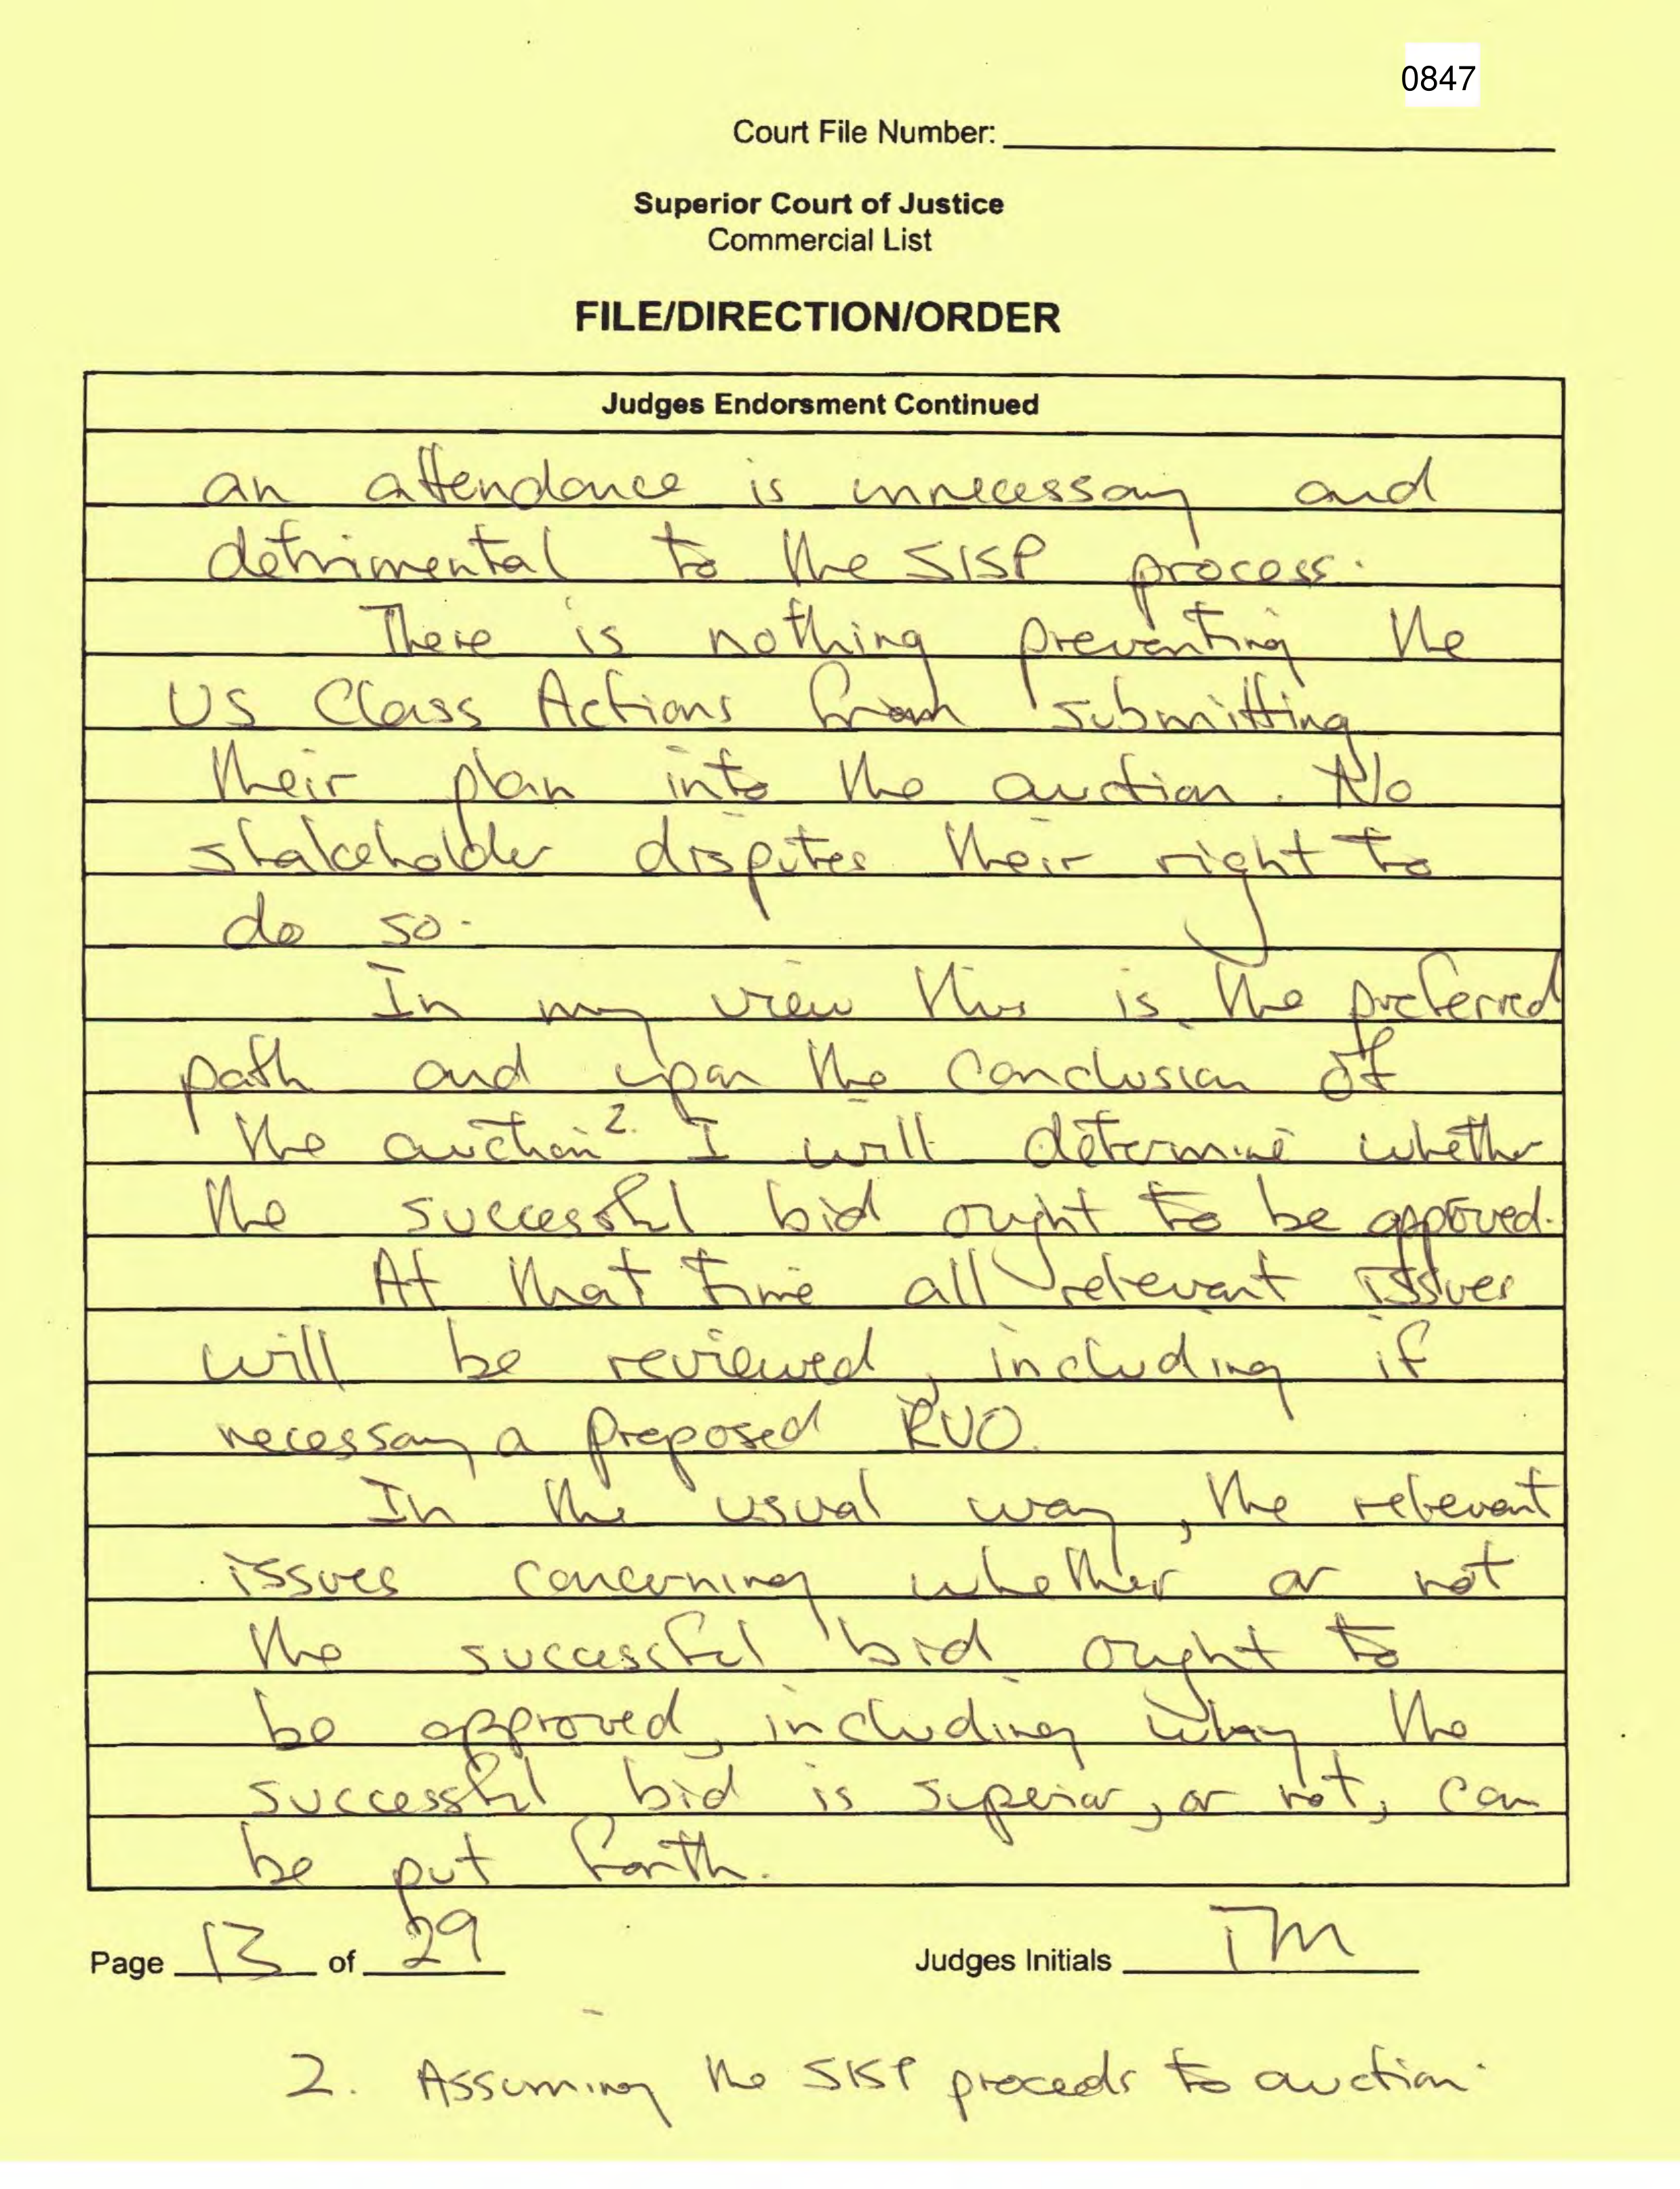 0847
Court File Number:
Superior Court of Justice
Commercial List
FILE/DIRECTION/ORDER
Judges Endorsment Continued
an attendance is unnecessary and
detrimental to the SISP process.
There is nothing preventing the
US Class Actions from submitting
their plan into the auction. No
stakeholder disputes their right to
do so.
In my view this is the preferred
path and upon the conclusion of
the auction 2. I will determine whether
the successful bid ought to be approved.
At that time all relevant issues
will be reviewed, including if
necessary a proposed RVO.
In the usual way, the relevant
issues concerning whether or not
the successful bid ought to
be approved, including why the
successful bid is superior, or not, can
be put forth.
Page 13 of 29 Judges Initials TM
2. Assuming the SISP proceeds to auction.